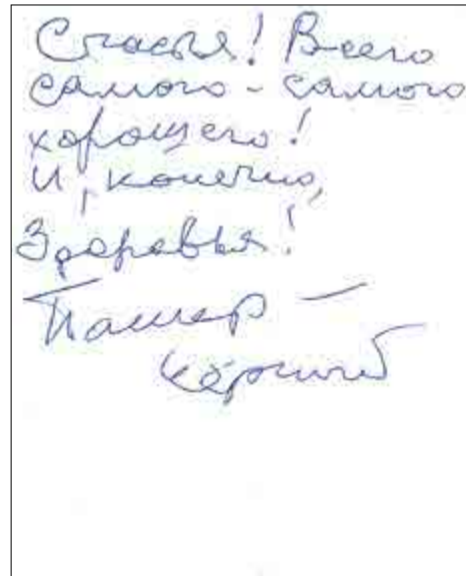 Счастья! Всего
самого - самого
хорошего!
И, конечно,
Здоровья!